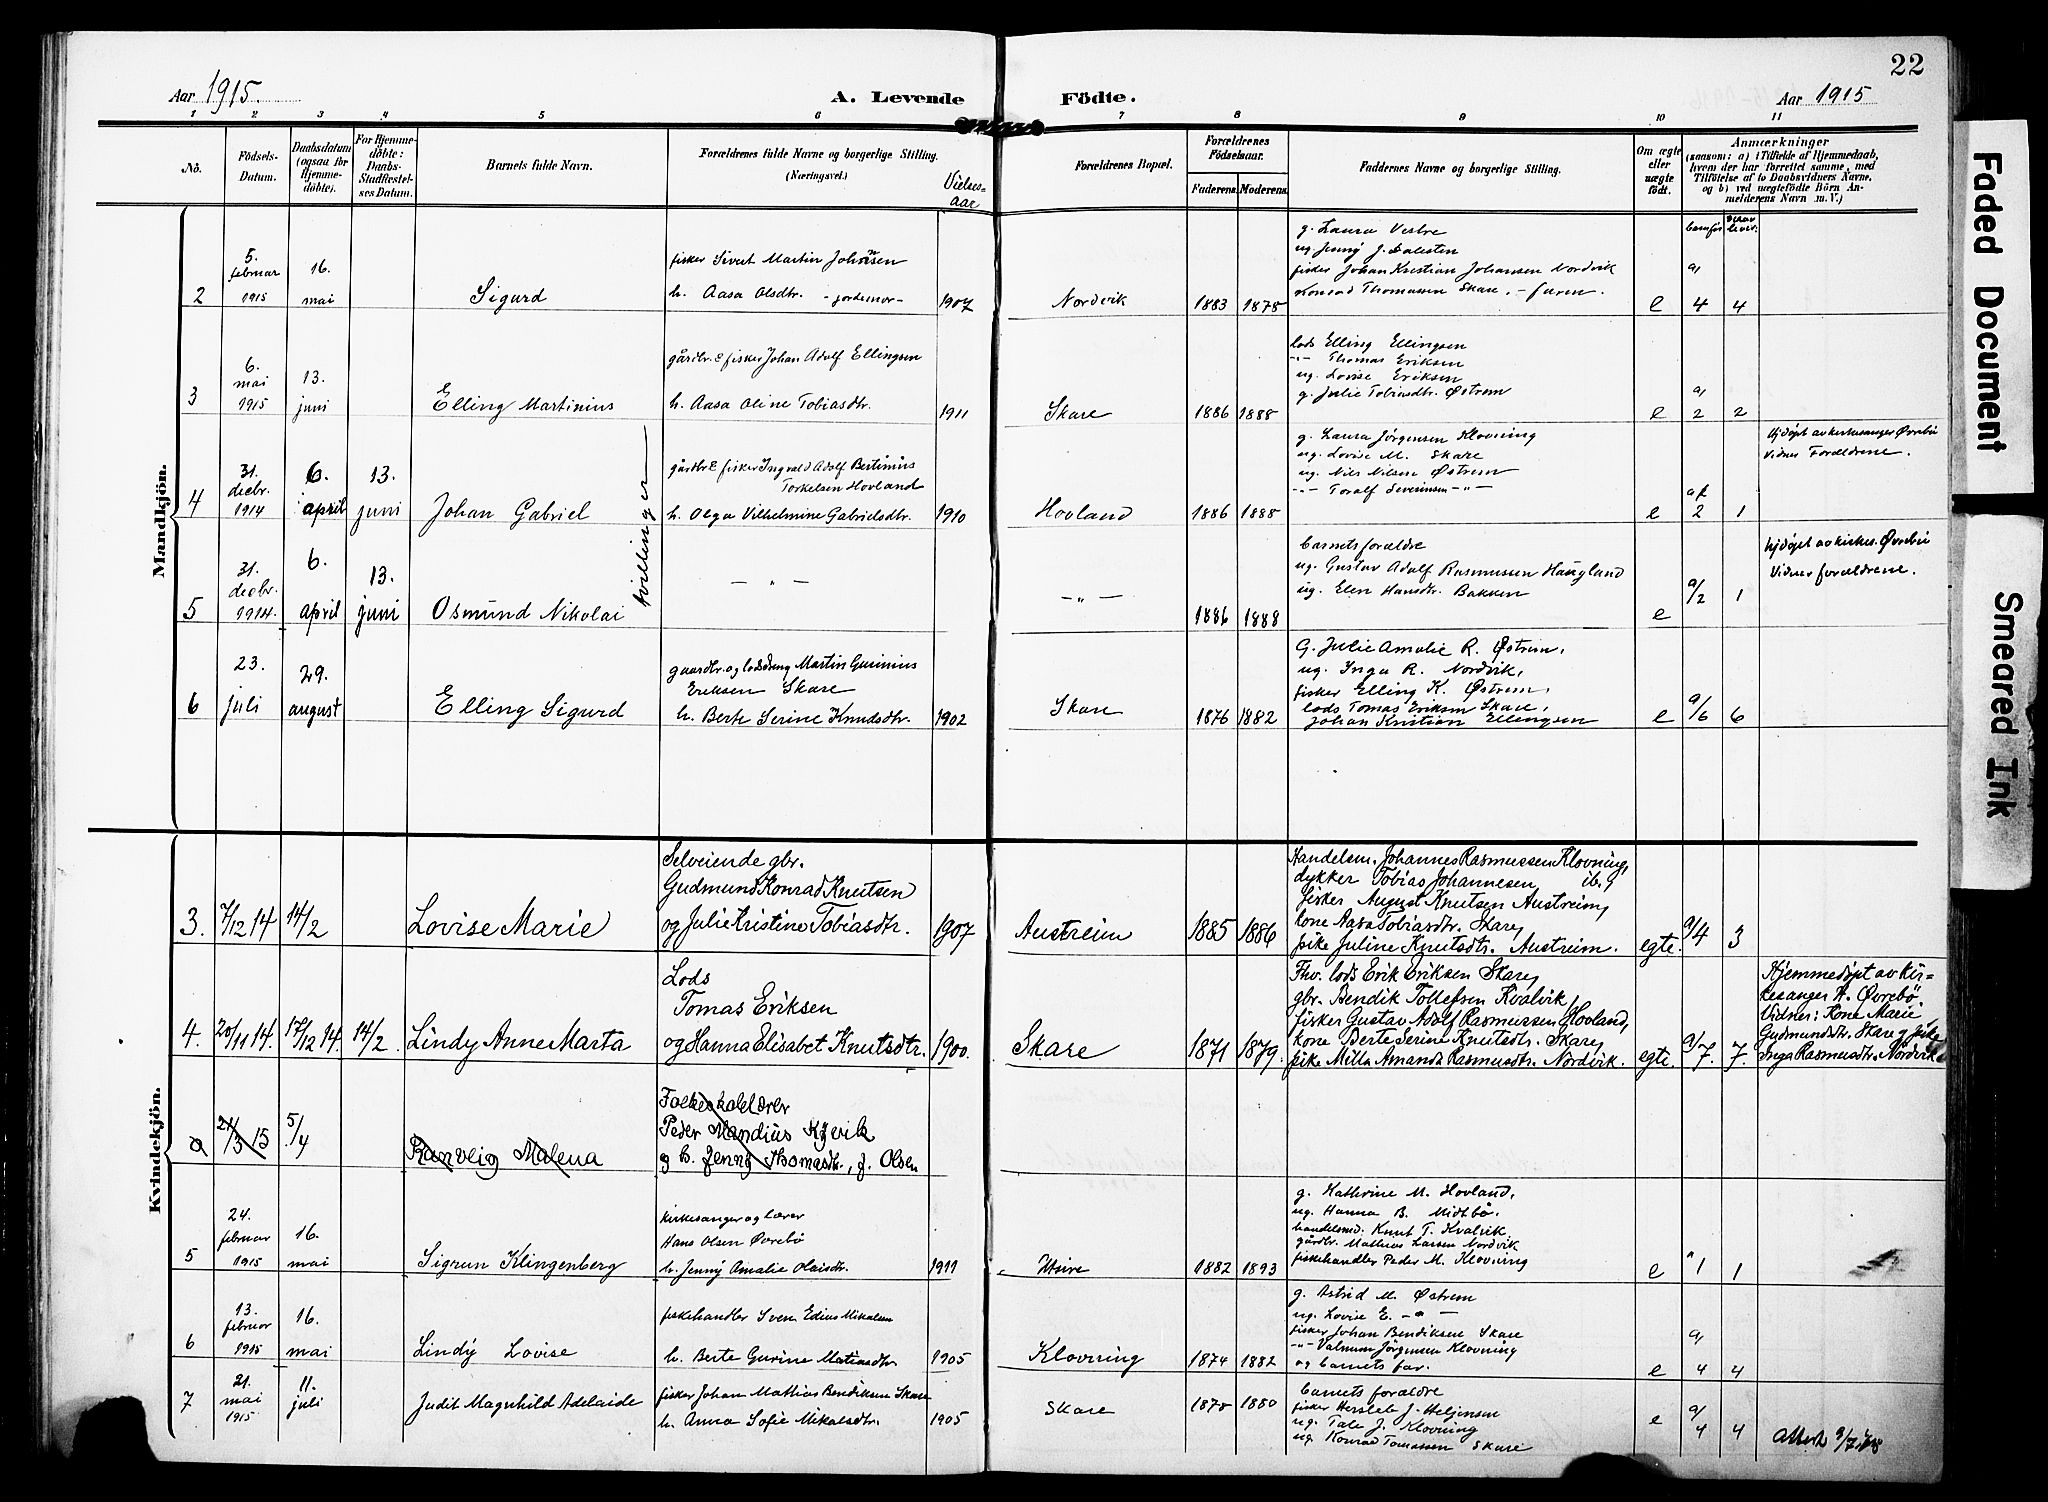 22
Aar 1915.
A. Levende Födte.
Aar 1915
1 2 3 4 5 6 7 8 9 10 11
No.
Födsels-
Datum.
Daabsdatum
(ogsaa for
Hjemme-
døbte).
For Hjemme-
døbte:
Daabs-
Stadfæstel-
ses Datum.
Barnets fulde Navn.
Forældrenes fulde Navne og borgerlige Stilling.
(Næringsvei.)
Vielses-
aar
Forældrenes Bopæl.
Forældrenes
Födselsaar.
Faderens. Moderens.
Faddernes Navne og borgerlige Stilling.
Om ægte
eller
uægte
födt.
Anmærkninger
(saasom: a) i Tilfælde af Hjemmedaab,
hvem der har forrettet samme, med
Tilföielse af to Daabsvidners Navne,
og b) ved uægtefödte Börn An-
melderens Navn m. V.)
Mandkjön.
2
5.
februar
1915
16.
mai
Sigurd
fisker Sivert Martin Johnsen
h. Aasa Olsdtr. - jordemor -
1907
Nordvik
1883 1878
g. Laura Vestre
ug. Jenny J. Dalesten
fisker Johan Kristian Johansen Nordvik
Konrad Thomassen Skare. - faren.
e
a/
4 4
3
6.
mai
1915
13.
juni
Elling Martinius
gårdbr. & fisker Johan Adolf Ellingsen
h. Aasa Oline Tobiasdtr.
1911
Skare
1886 1888
lods Elling Ellingsen
-"- Thomas Eriksen
ug. Lovise Eriksen
g. Julie Tobiasdtr. Østrem
e
a/
2 2
4
31.
decbr.
1914
6.
april
13.
juni
Johan Gabriel
tvillinger
gårdbr & fisker Ingvald Adolf Bertinius
Torkelsen Hovland
h. Olga Vilhelmine Gabrielsdtr.
1910
Hovland
1886 1888
g. Laura Jørgensen Klovning
ug. Lovise M. Skare
ug. Nils Nilsen Østrem
-"- Toralf Severinsen -"-
e
a/
2 1
Hjdöpt av kirkesanger Øvrebö
Vidner Forældrene.
5
31.
decbr.
1914.
6.
april
13.
juni
Osmund Nikolai
- " -
- " -
1886 1888
barnets forældre
ug. Gustav Adolf Rasmussen Haugland
ug. Elen Hansdtr. Bakken
e
a/2 1
Hjdöpt av kirkes. Øvrebö
Vidner forældrene.
6
23.
juli
29.
august
Elling Sigurd
gaardbr. og lodsdreng Martin Gurinius
Eriksen Skare
h. Berte Serine Knudsdtr.
1902
Skare
1876 1882
G. Julie Amalie R. Østrem,
ug. Inga R. Nordvik,
fisker Elling K. Østrem,
lods Tomas Eriksen Skare,
Johan Kristian Ellingsen
e
a/6 6
Kvindekjön.
3.
7/12 14
14/2
Lovise Marie
Selveiende gbr.
Gudmund Konrad Knutsen
og Julie Kristine Tobiasdtr.
1907
Austreim
1885 1886
Handelsm. Johannes Rasmussen Klovning,
dykker Tobias Johannesen ib.,
fisker August Knutsen Austreim,
kone Aasa Tobiasdtr. Skare,
pike Juline Knutsdtr. Austreim.
egte.
a/4 3
4.
20/11 14.
17/12 14.
14/2.
Lindy Anne Marta
Lods
Tomas Eriksen
og Hanna Elisabet Knutsdtr.
1900.
Skare
1871 1879.
Fhv. lods Erik Eriksen Skare,
gbr. Bendik Tollefsen Kvalvik,
fisker Gustav Adolf Rasmussen Hovland,
kone Berte Serine Knutsdtr. Skare,
pike Milla Amanda Rasmusdtr. Nordvik.
egte.
a/7. 7.
Hjemmedöpt av kir-
kesanger H. Øvrebö.
Vidner: Kone Marie
Gudmundsdtr. Skare og pike
Inga Rasmusdtr. Nordvik
a
21/3 15
5/4
Ranveig Malena
Folkeskolelærer
Peder Mandius Kyvik
og h. Jenny Thomasdtr., f. Olsen
5
24.
februar
1915
16.
mai
Sigrun Klingenberg
kirkesanger og lærer
Hans Olsen Øvrebö
h. Jenny Amalie Olaisdtr.
1911
Utsire
1882 1893
g. Kathrine M. Hovland,
ug. Hanna B. Midtbö.
handelsmd. Knut T. Kvalvik.
gårdbr. Mathias Larsen Nordvik
fiskehandler Peder M. Klovning
e
" 1 1
6
13.
februar
1915
16.
mai
Lindy Lovise
fiskehandler Sven Edius Mikalsen
h. Berte Gurine Matiasdtr.
1905
Klovning
1874 1882
g. Astrid M. Østrem
ug. Lovise E. - " -
fisker Johan Bendiksen Skare
-"- Valmum Jørgensen Klovning
og barnets far.
e
a/
4 4
7
21.
mai
1915
11.
juli
Judit Magnhild Adelaide
fisker Johan Mathias Bendiksen Skare
h. Anna Sofie Mikalsdtr.
1905
Skare
1878 1880
barnets forældre
fisker Hersleb J. Heljensen
ug. Tale J. Klovning
ug. Konrad Tomassen Skare
e
a/
4 4
Attest
Faded Document
Smeared Ink